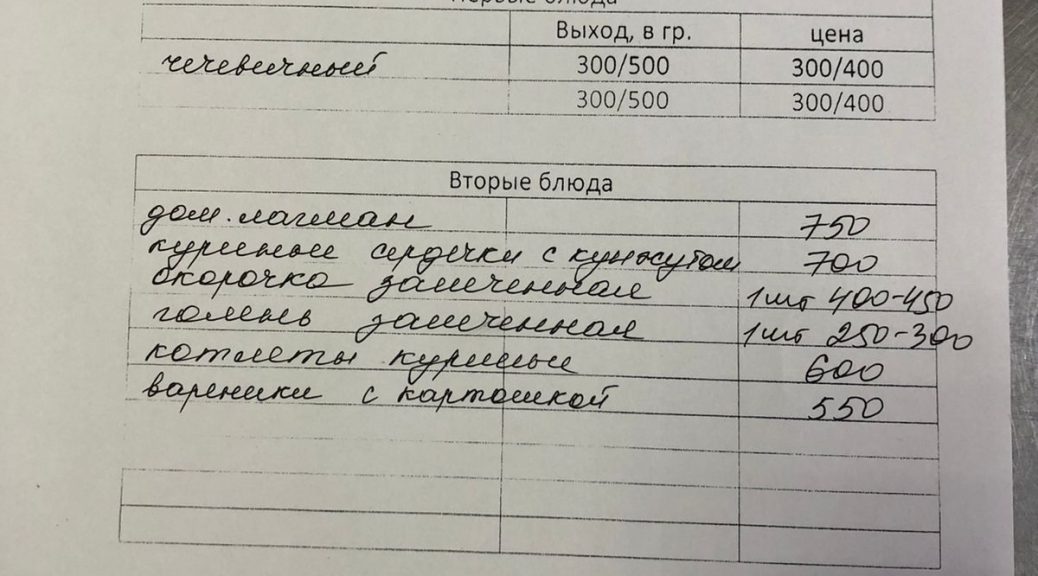 Первые блюда
Выход, в гр. цена
чечевичный 300/500 300/400
300/500 300/400
Вторые блюда
дом. лагман 750
куриные сердечки с кунжутом 700
окорочка запеченная 1шт 400-450
голень запеченная 1шт 250-300
котлеты куриные 600
вареники с картошкой 550